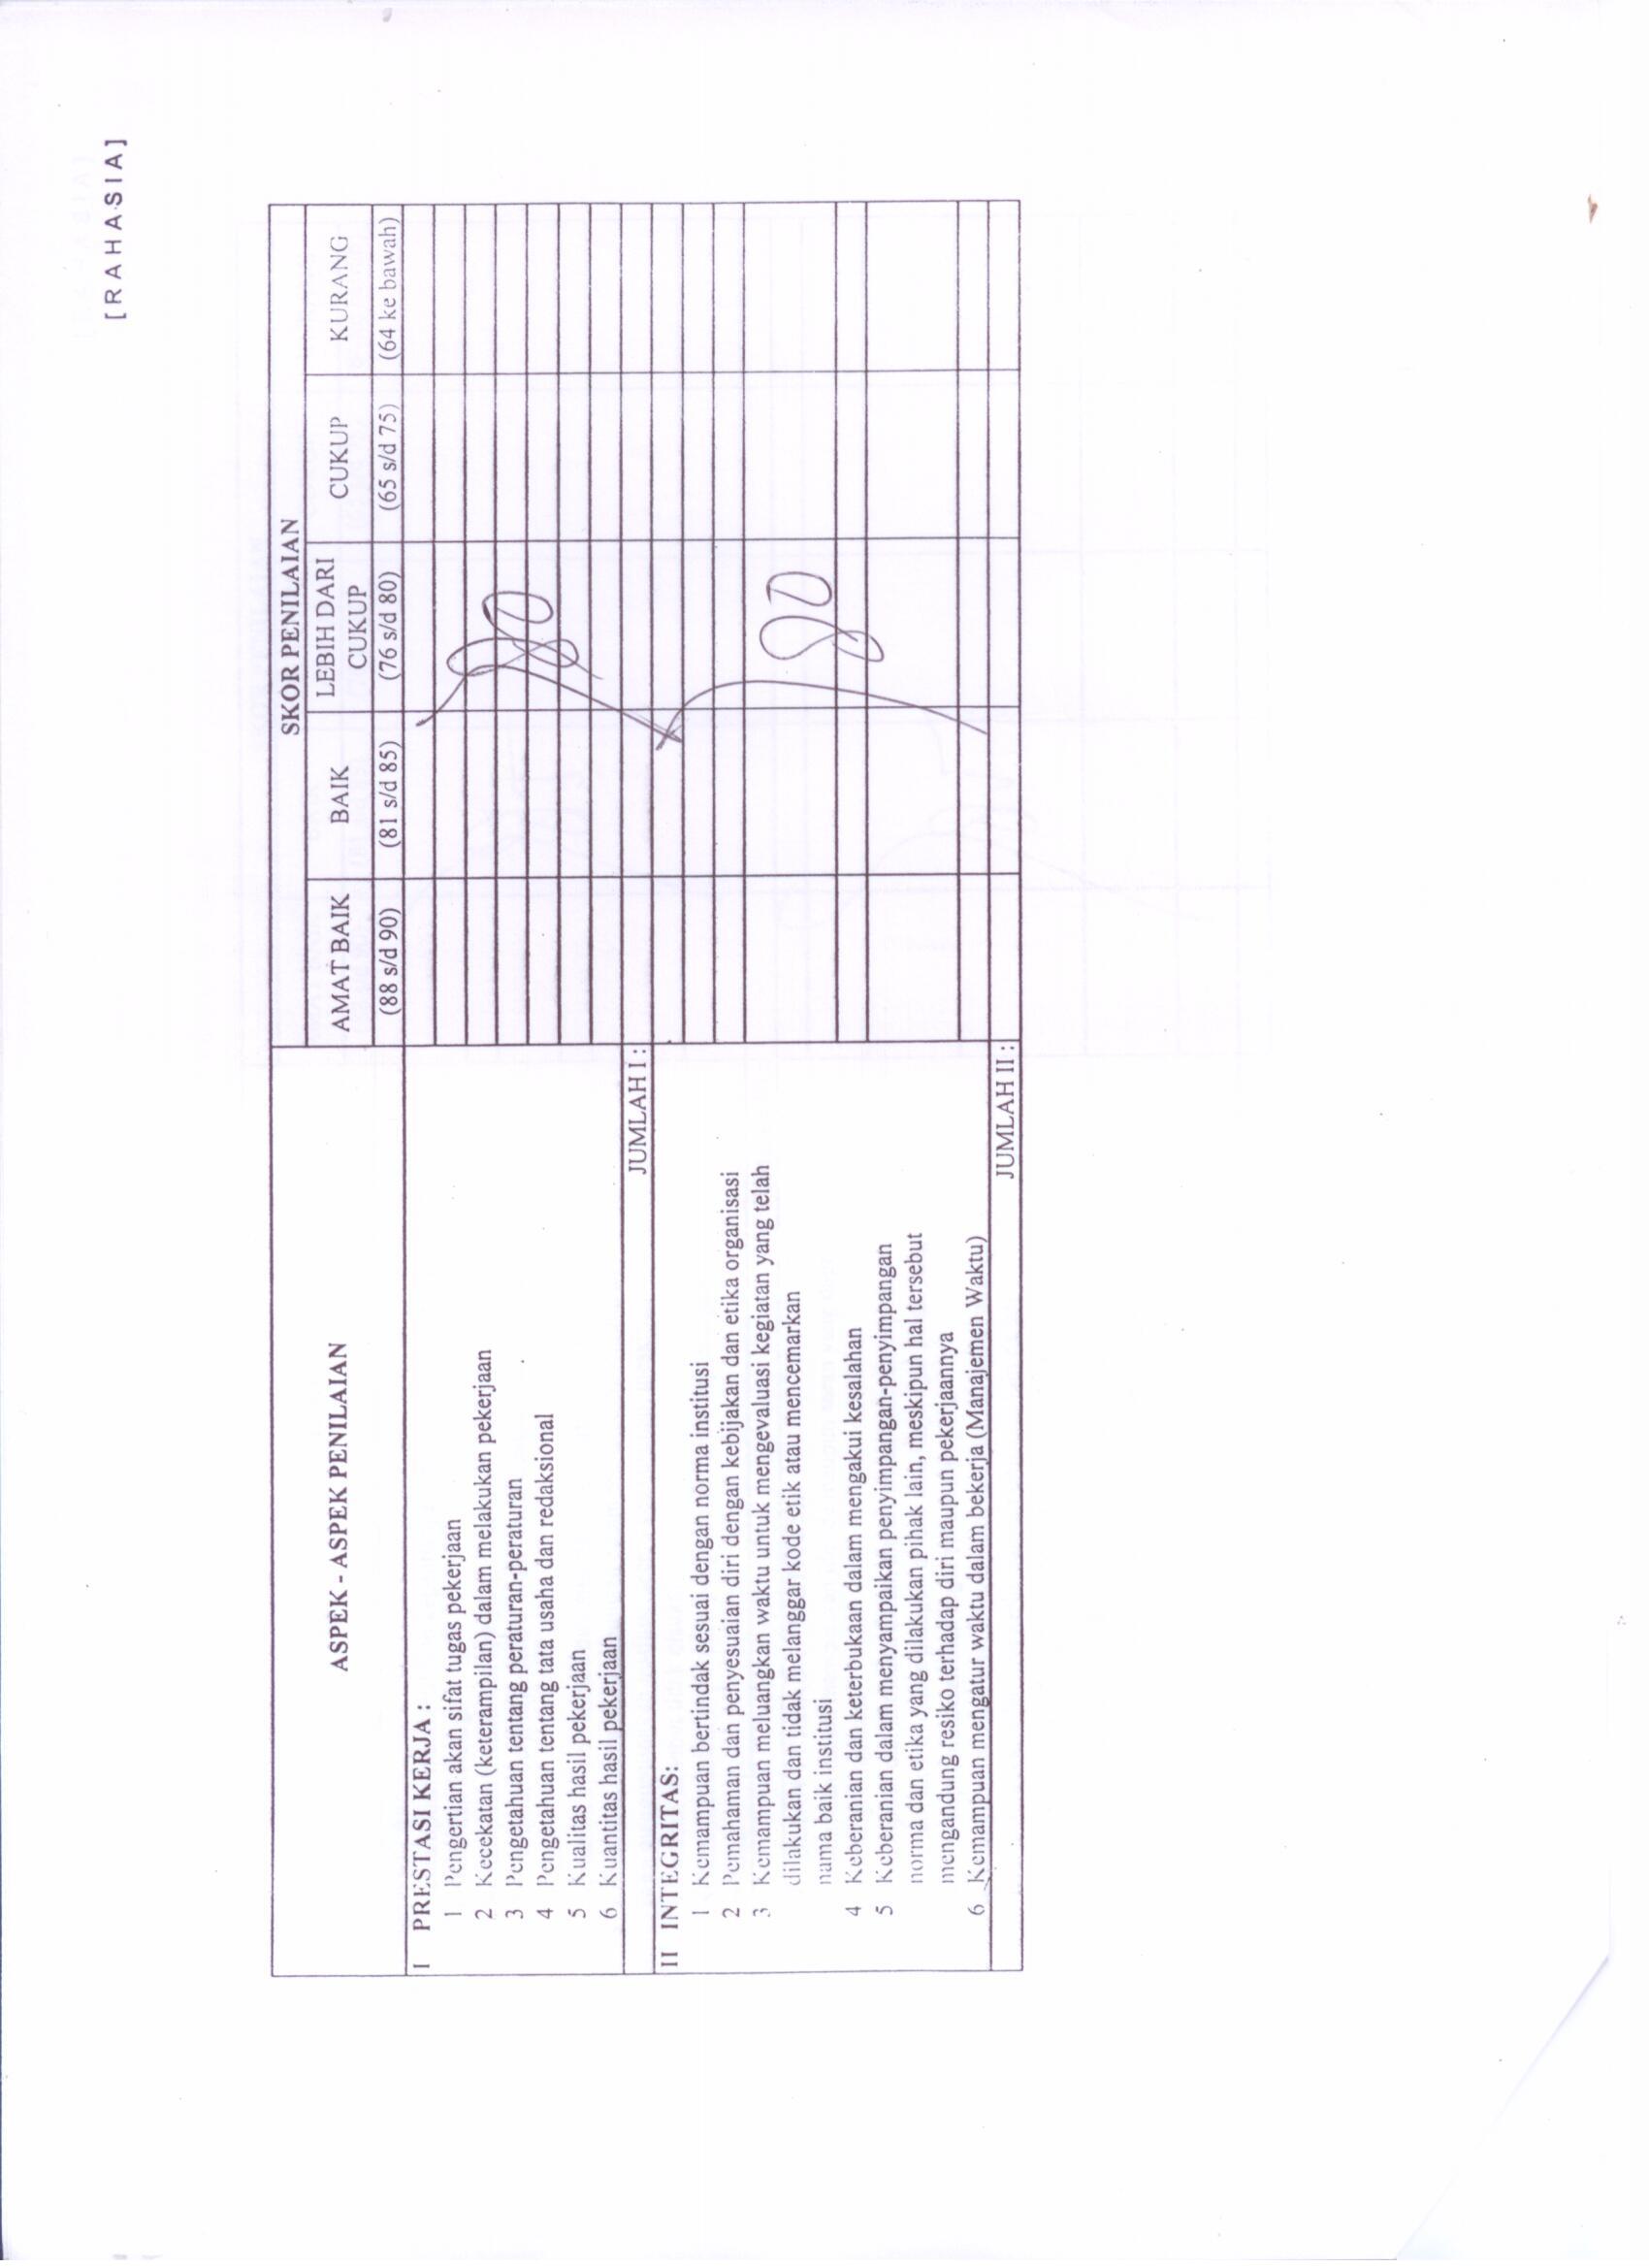 [RAHASIA]
ASPEK - ASPEK PENILAIAN
SKOR PENILAIAN
AMAT BAIK BAIK LEBIH DARI CUKUP CUKUP KURANG
(88 s/d 90) (81 s/d 85) (76 s/d 80) (65 s/d 75) (64 ke bawah)
I PRESTASI KERJA :
1 Pengertian akan sifat tugas pekerjaan
2 Kecekatan (keterampilan) dalam melakukan pekerjaan
3 Pengetahuan tentang peraturan-peraturan
80
4 Pengetahuan tentang tata usaha dan redaksional
5 Kualitas hasil pekerjaan
6 Kuantitas hasil pekerjaan
JUMLAH I :
II INTEGRITAS:
1 Kemampuan bertindak sesuai dengan norma institusi
2 Pemahaman dan penyesuaian diri dengan kebijakan dan etika organisasi
3 Kemampuan meluangkan waktu untuk mengevaluasi kegiatan yang telah
dilakukan dan tidak melanggar kode etik atau mencemarkan
nama baik institusi
80
4 Keberanian dan keterbukaan dalam mengakui kesalahan
5 Keberanian dalam menyampaikan penyimpangan-penyimpangan
norma dan etika yang dilakukan pihak lain, meskipun hal tersebut
mengandung resiko terhadap diri maupun pekerjaannya
6 Kemampuan mengatur waktu dalam bekerja (Manajemen Waktu)
JUMLAH II :